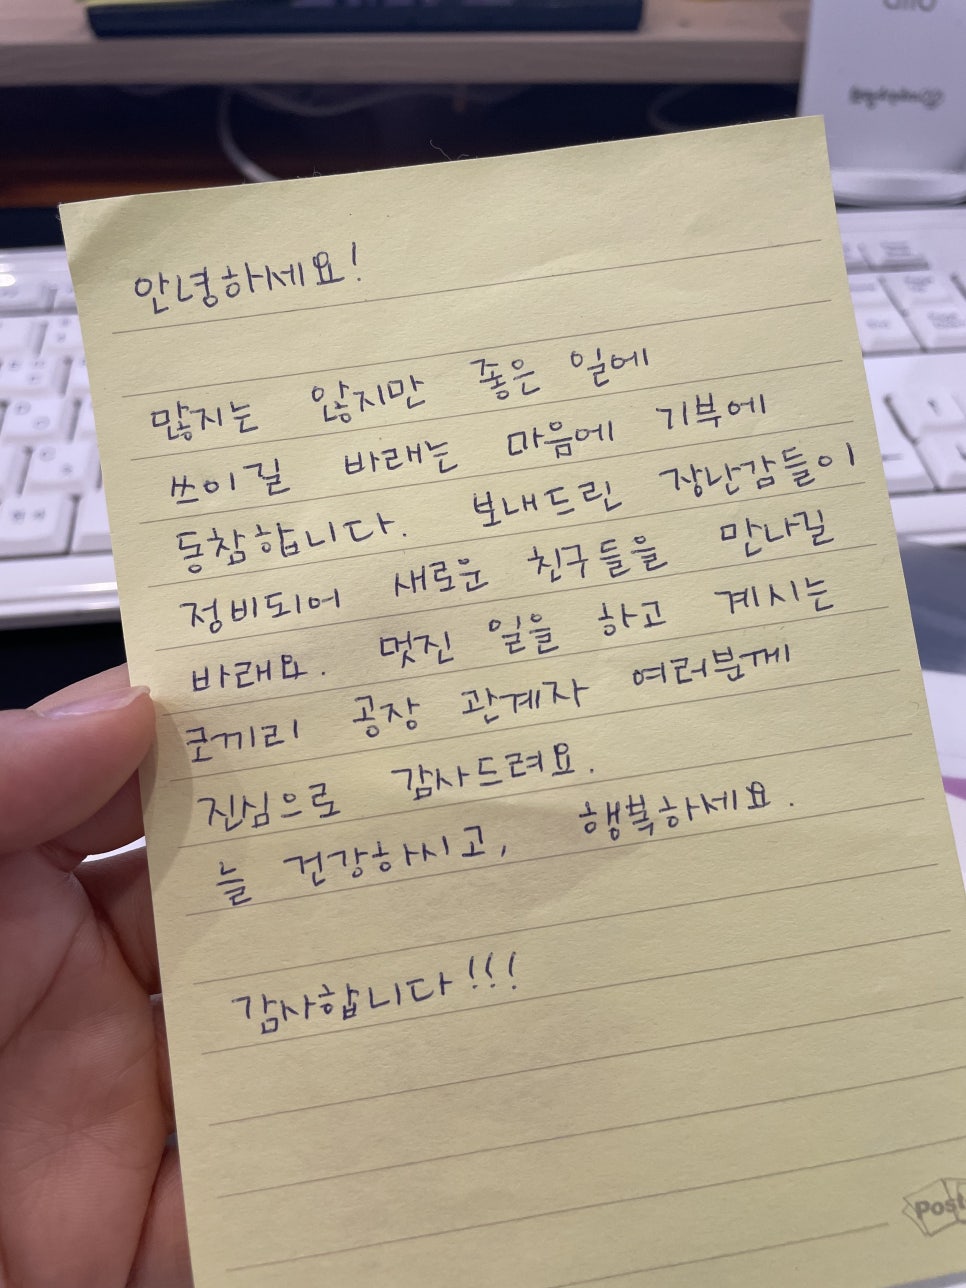 안녕하세요!
많지는 않지만 좋은 일에
쓰이길 바래는 마음에 기부에
동참합니다. 보내드린 장난감들이
정비되어 새로운 친구들을 만나길
바래요. 멋진 일을 하고 계시는
코끼리 공장 관계자 여러분께
진심으로 감사드려요.
늘 건강하시고, 행복하세요.
감사합니다!!!
Post